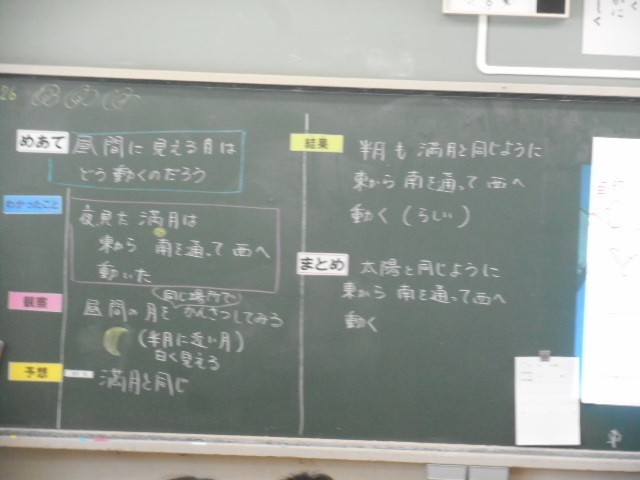 26
めあて
昼間に見える月は
どう動くのだろう
わかったこと
夜見た満月は
東から 南を通って西へ
動いた
観察
同じ場所で
昼間の月をかんさつしてみる
(半月に近い月)
白く見える
予想
満月と同じ
結果
半月も満月と同じように
東から南を通って西へ
動く(らしい)
まとめ
太陽と同じように
東から南を通って西へ
動く